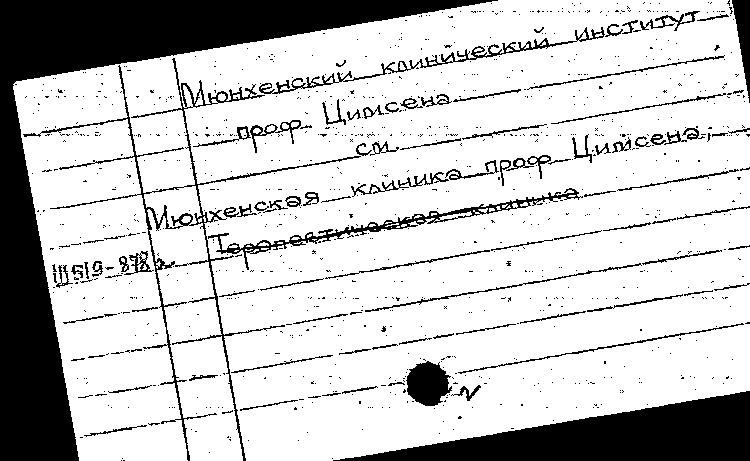 Мюнхенский клинический институт
проф. Цимсена
см.
Мюнхенская клиника проф Цимсена,
Терапевтическая клиника